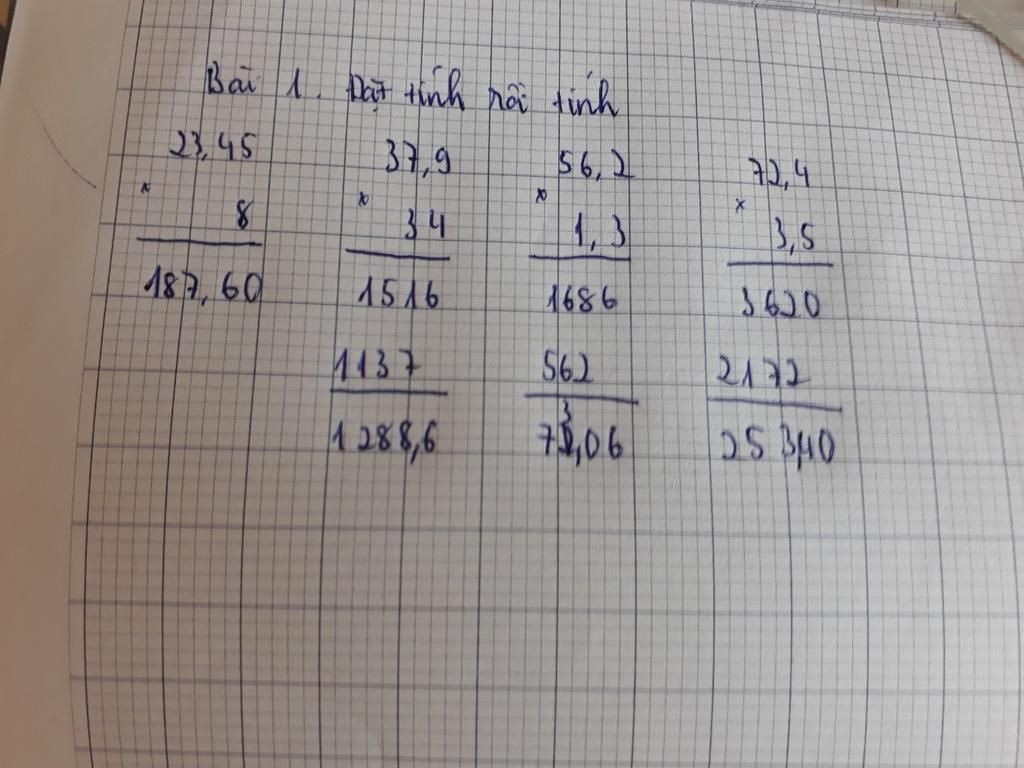 Bài 1. Đặt tính rồi tính
23,45 37,9 56,2 72,4
x 8 x 34 x 1,3 x 3,5
187,60 1516 1686 3620
1137 562 2172
1288,6 73,06 253,40